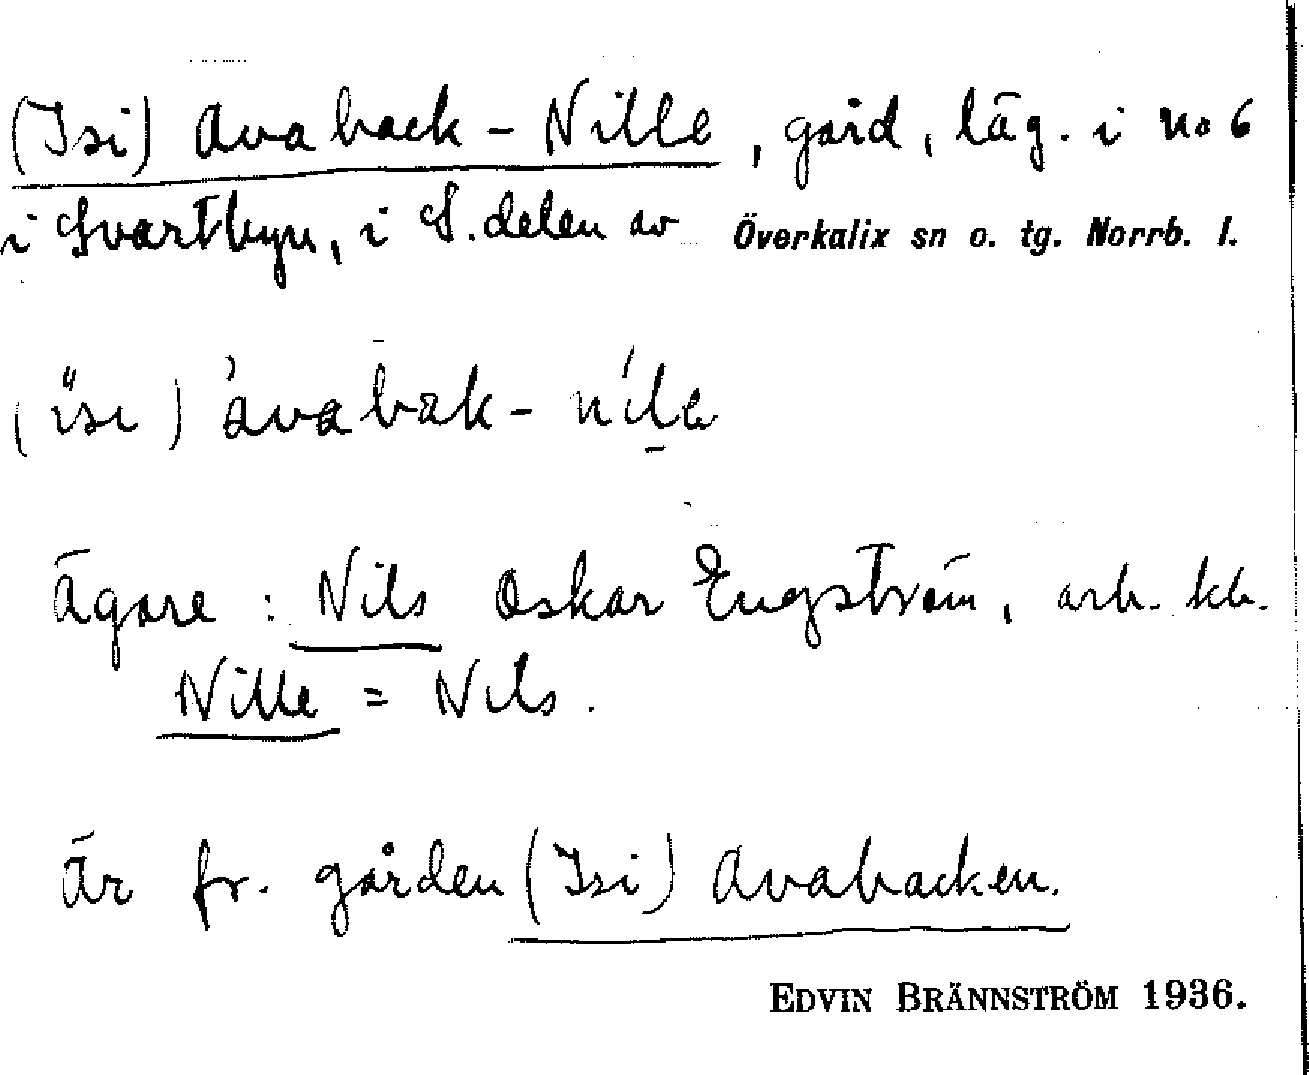 (Isi) Avaback-Nille, gård, läg. i no 6
i Svartbyn, i S. delen av Överkalix sn o. tg. Norrb. l.
(ı̋sı) àvabak-níla
ägare : Nils Oskar Engström, arb. kb.
Nille = Nils.
är fr. gården (Isi) Avabacken.
EDVIN BRÄNNSTRÖM 1936.